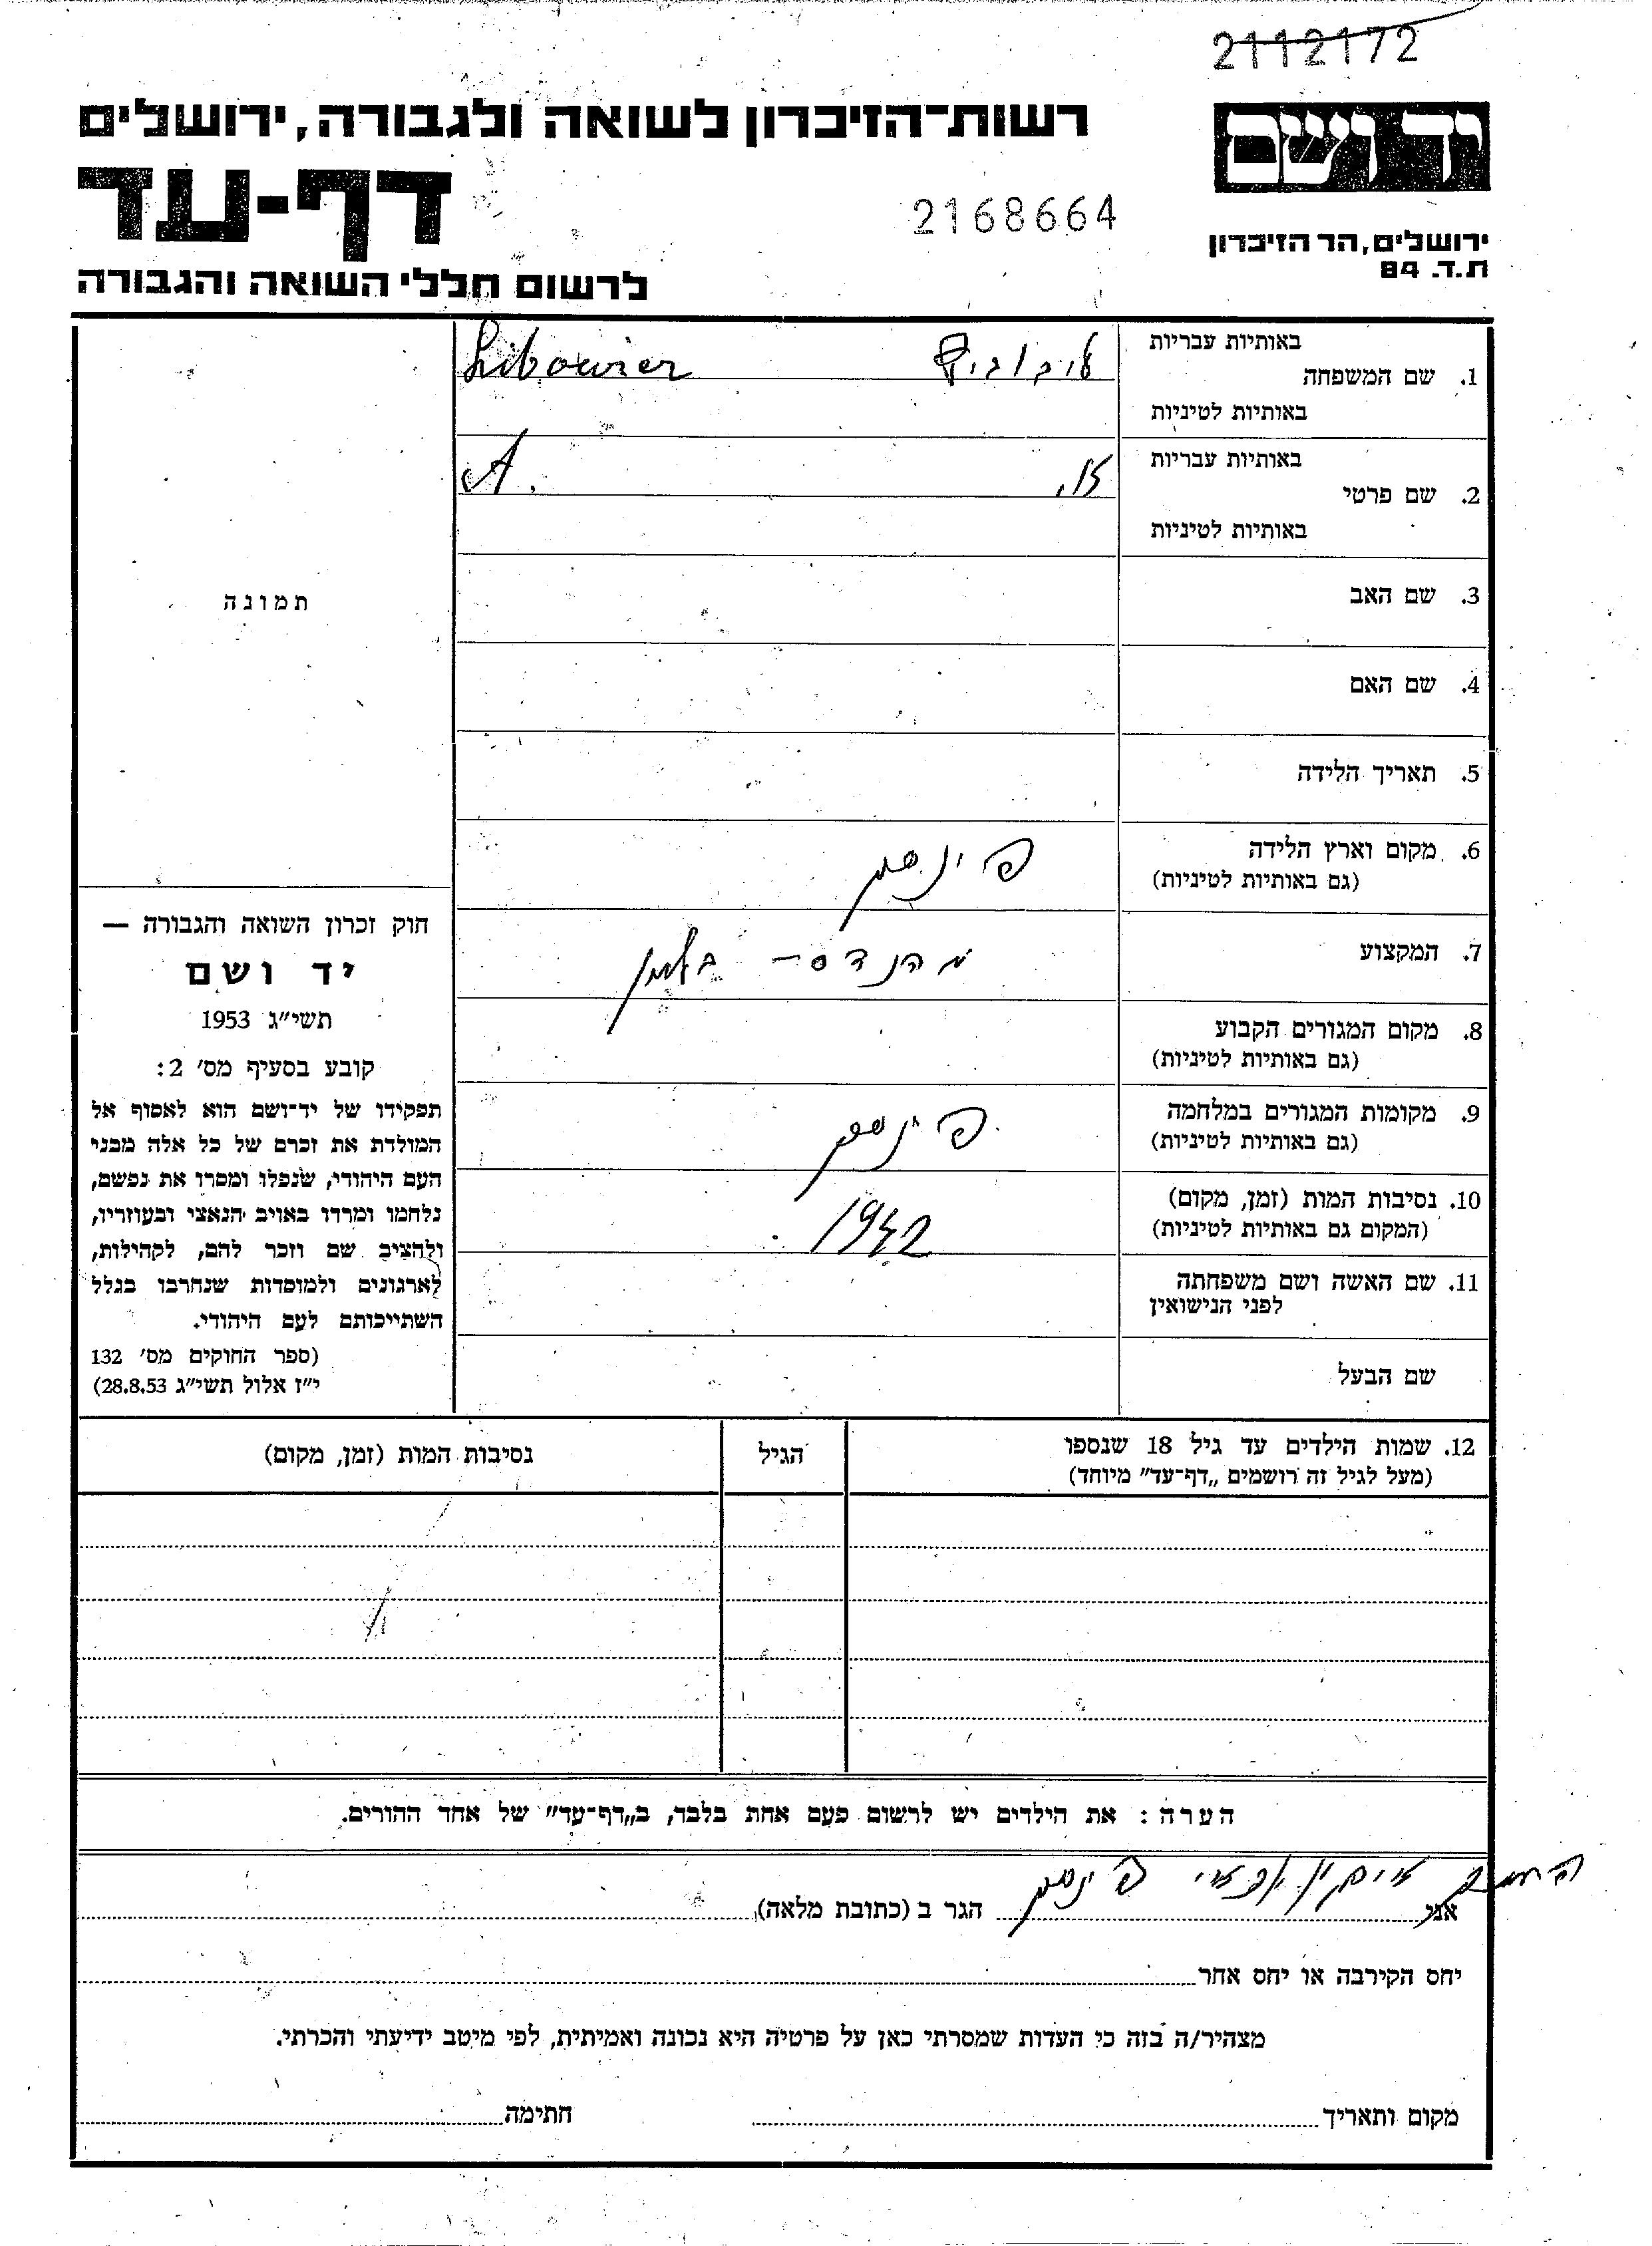 2112172
רשות־הזיכרון לשואה ולגבורה, ירושלים
יד ושם
דף-עד
2168664
ירושלים, הר הזיכרון
ת.ד. 84
לרשום חללי השואה והגבורה
באותיות עבריות
1. שם המשפחה
Libowier
באותיות לטיניות
באותיות עבריות
2. שם פרטי
א.
A.
באותיות לטיניות
3. שם האב
4. שם האם
5. תאריך הלידה
6. מקום וארץ הלידה
(גם באותיות לטיניות)
פינסק
7. המקצוע
מהנדס -
8. מקום המגורים הקבוע
(גם באותיות לטיניות)
9. מקומות המגורים במלחמה
(גם באותיות לטיניות)
פינסק
10. נסיבות המות (זמן, מקום)
(המקום גם באותיות לטיניות)
1942
11. שם האשה ושם משפחתה
לפני הנישואין
שם הבעל
תמונה
חוק זכרון השואה והגבורה —
יד ושם
תשי"ג 1953
קובע בסעיף מס' 2:
תפקידו של יד־ושם הוא לאסוף אל
המולדת את זכרם של כל אלה מבני
העם היהודי, שנפלו ומסרו את נפשם,
נלחמו ומרדו באויב הנאצי ובעוזריו,
ולהציב שם וזכר להם, לקהילות,
לארגונים ולמוסדות שנחרבו בגלל
השתייכותם לעם היהודי.
(ספר החוקים מס' 132
י"ז אלול תשי"ג 28.8.53)
12. שמות הילדים עד גיל 18 שנספו
(מעל לגיל זה רושמים „דף־עד" מיוחד)
הגיל
נסיבות המות (זמן, מקום)
הערה: את הילדים יש לרשום פעם אחת בלבד, ב„דף־עד" של אחד ההורים.
ארגון יוצאי פינסק
אני
הגר ב (כתובת מלאה)
יחס הקירבה או יחס אחר
מצהיר/ה בזה כי העדות שמסרתי כאן על פרטיה היא נכונה ואמיתית, לפי מיטב ידיעתי והכרתי.
מקום ותאריך
חתימה